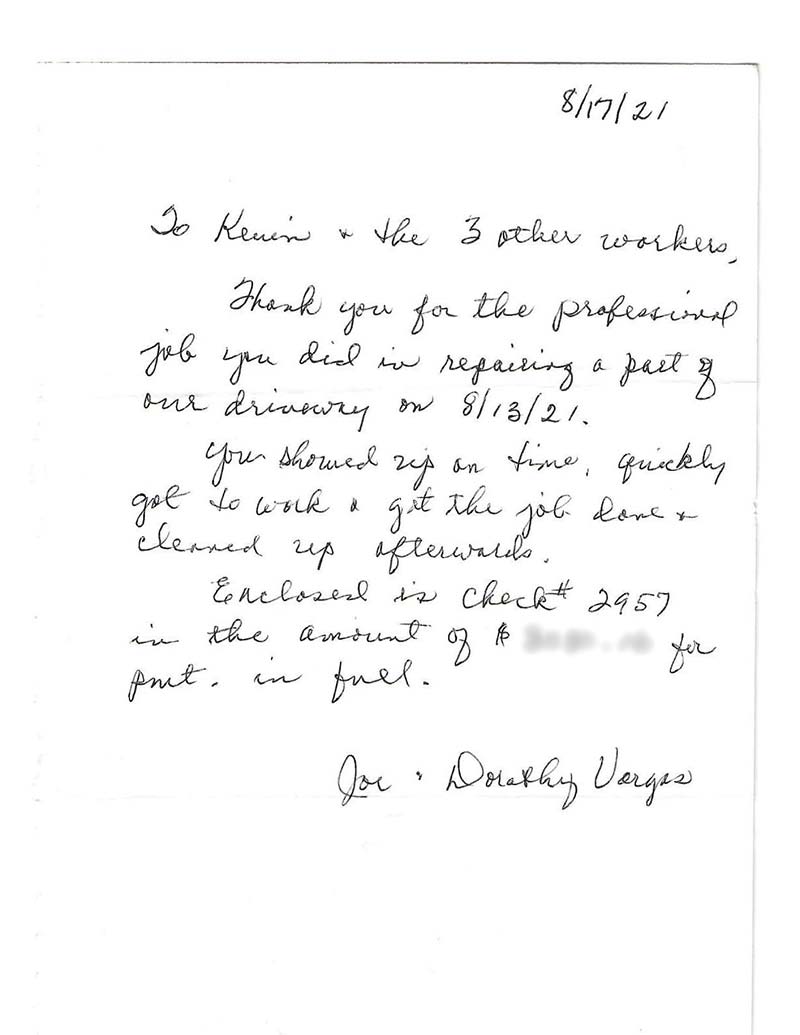 8/17/21
To Kevin & the 3 other workers,
Thank you for the professional
job you did in repairing a part of
our driveway on 8/13/21.
You showed up on time, quickly
got to work & got the job done &
cleaned up afterwards.
Enclosed is check# 2957
in the amount of $ for
pmt. in full.
Joe & Dorothy Vargas